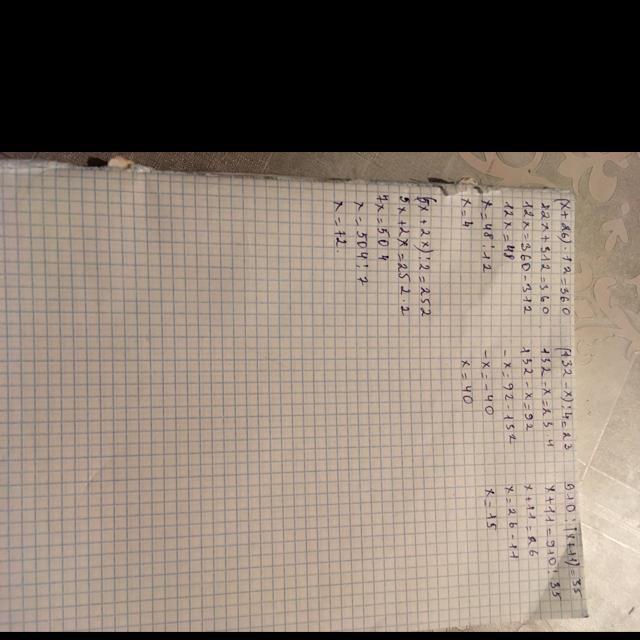 (x+26)·12=360
12x+312=360
12x=360-312
12x=48
x=48:12
x=4
(132-x):4=23
132-x=23·4
132-x=92
-x=92-132
-x=-40
x=40
910:(x+11)=35
x+11=910:35
x+11=26
x=26-11
x=15
(5x+2x):2=252
5x+2x=252·2
7x=504
x=504:7
x=72